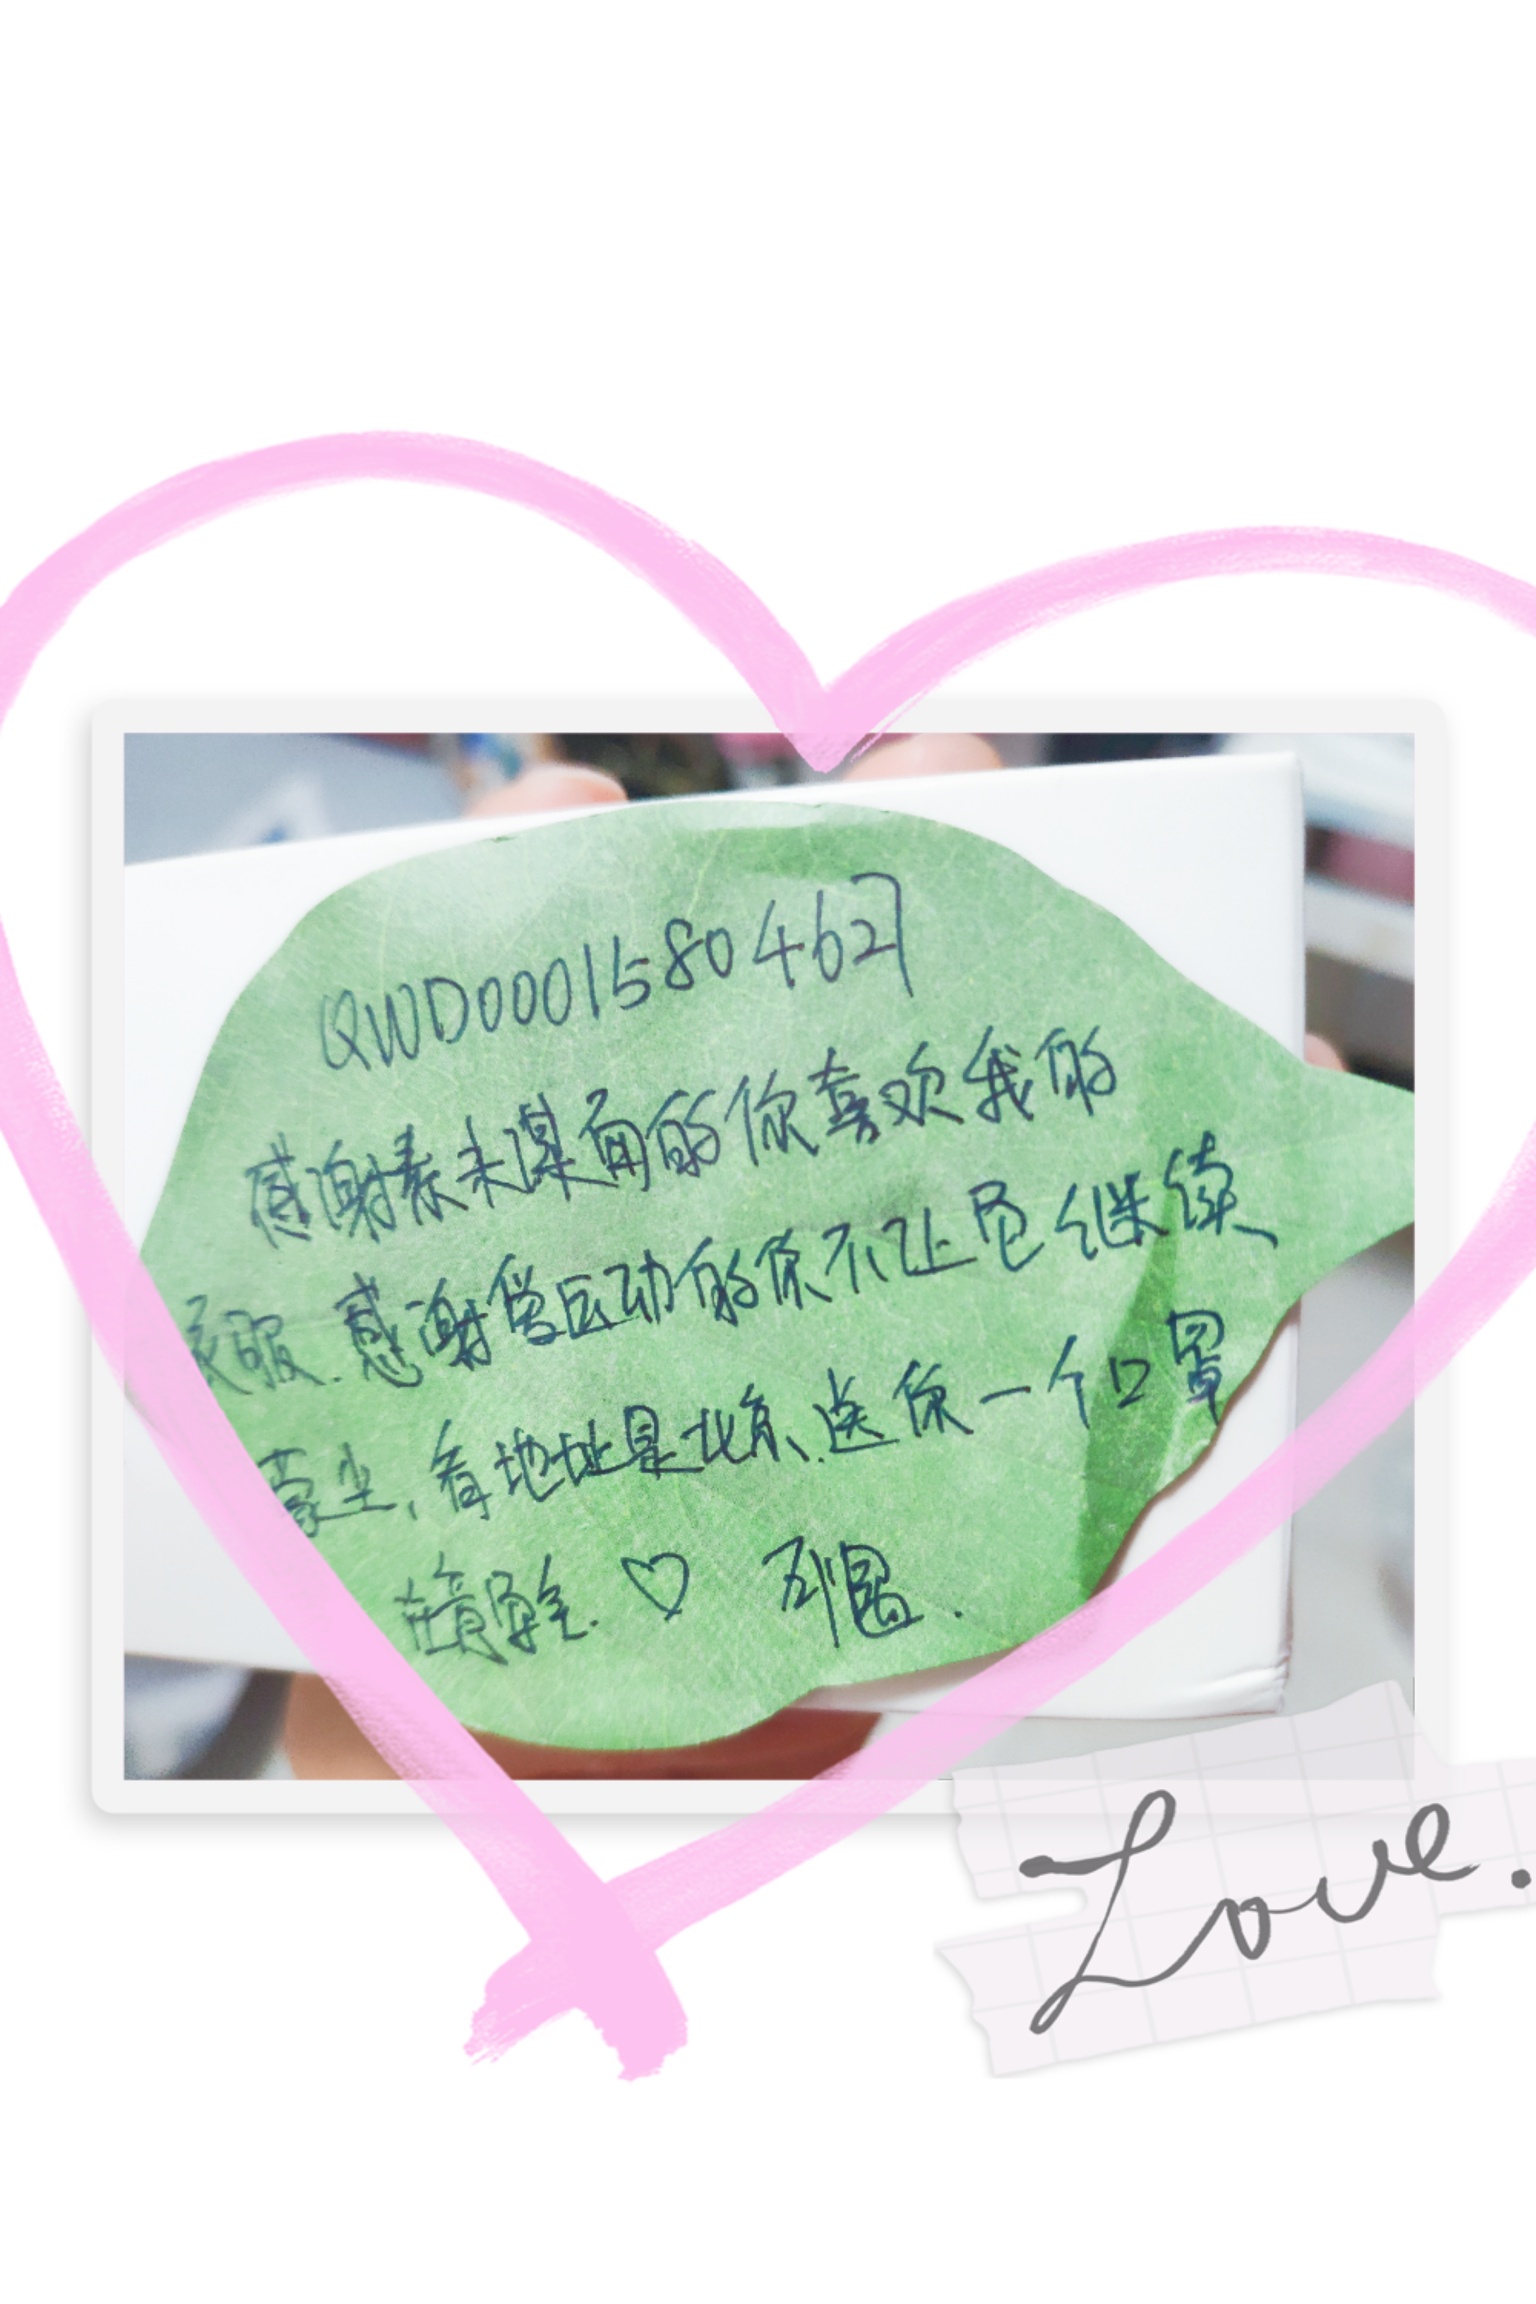 QWD0001580462
感谢素未谋面的你喜欢我的
衣服.感谢爱运动的你不让它继续
蒙尘,看地址是北京.送你一个口罩
♡
Love.